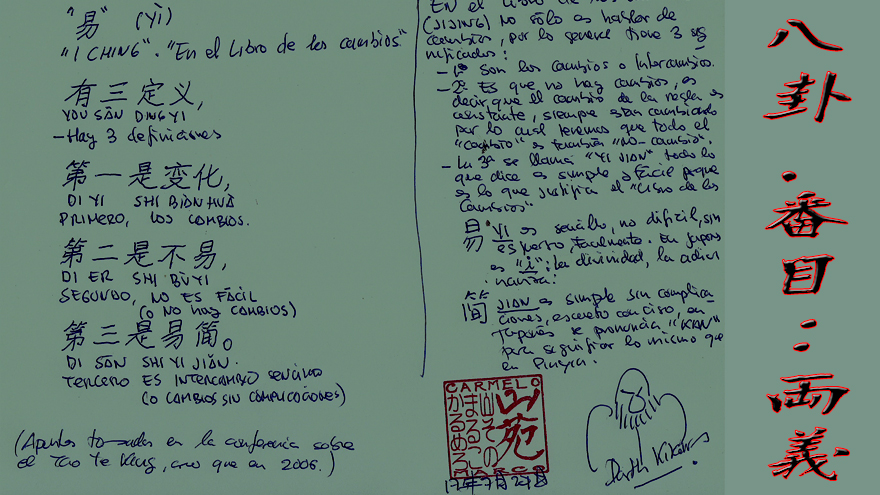 "易" (YÌ)
"I CHING". "En el Libro de los cambios."
有三定义,
YOU SĀN DING YI
– Hay 3 definiciones
第一是变化,
DI YI SHI BIÀN HUÀ
PRIMERO, LOS CAMBIOS.
第二是不易,
DI ER SHI BÙ YI
SEGUNDO, NO ES FÁCIL
(O NO HAY CAMBIOS)
第三是易简。
DI SĀN SHI YI JIǍN.
TERCERO ES INTERCAMBIO SENCILLO
(O CAMBIOS SIN COMPLICACIONES)
(Apuntes tomados en la conferencia sobre
el Tao Te King, creo que en 2006.)
EN el Libro de los
(YIJING) NO sólo es hablar de
cambios, por lo general tiene 3 sig
nificados:
– 1º Son los cambios o Intercambios.
– 2º Es que no hay cambios, es
decir, que el cambio de la regla es
constante, siempre están cambiando
por lo cual tenemos que todo el
"cambio" es también "no-cambio".
– La 3ª se llama "YI JIAN" todo lo
que dice es simple o fácil porque
es lo que justifica el "Libro de los
Cambios"
易 YI es sencillo, no difícil, sin
en japonés
es "i"; la divinidad, la adivi
nanza.
简 JIAN es simple sin complica
ciones, escueto conciso, en
Japonés se pronuncia "KAN"
para significar lo mismo que
en Pinyin.
CARMELO
山苑
MARCO
八卦・番目：両義